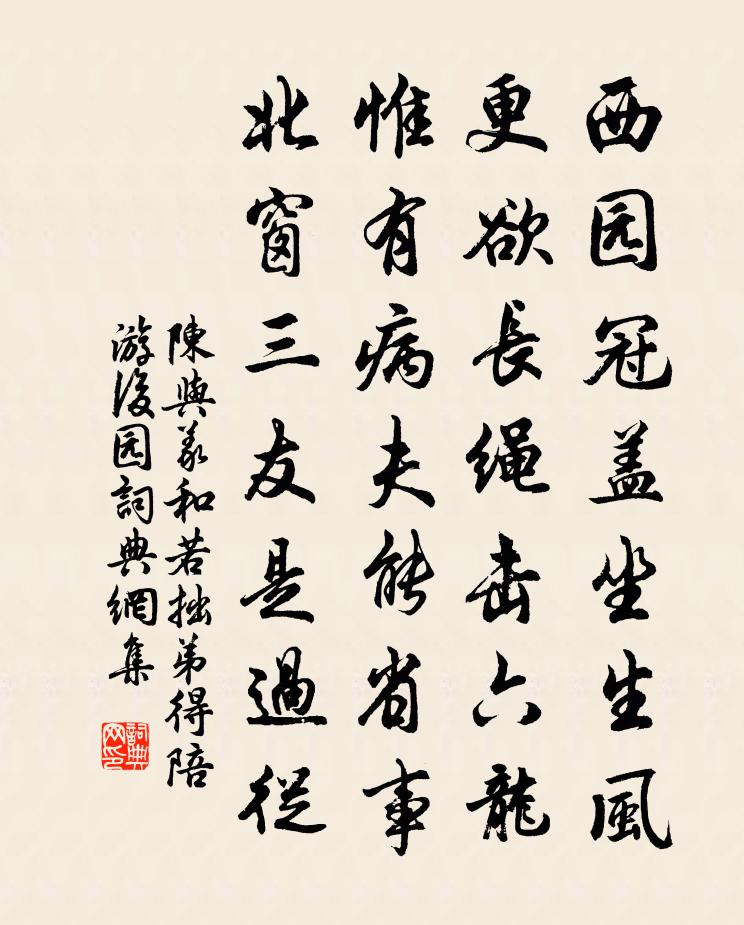 西园冠盖坐生風
更欲長绳击六龍
惟有病夫能省事
北窗三友是過從
陳與义和若拙弟得陪
游後园詞典網集
詞典网印